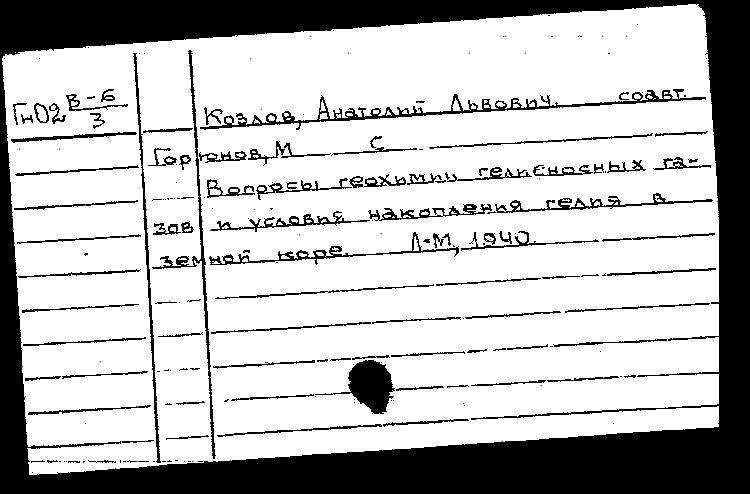 ГнО2 В-6/3
Козлов, Анатолий Львович. соавт.
Горюнов, М С
Вопросы геохимии гелиеносных га-
зов и условия накопления гелия в
земной коре. Л-М, 1940.